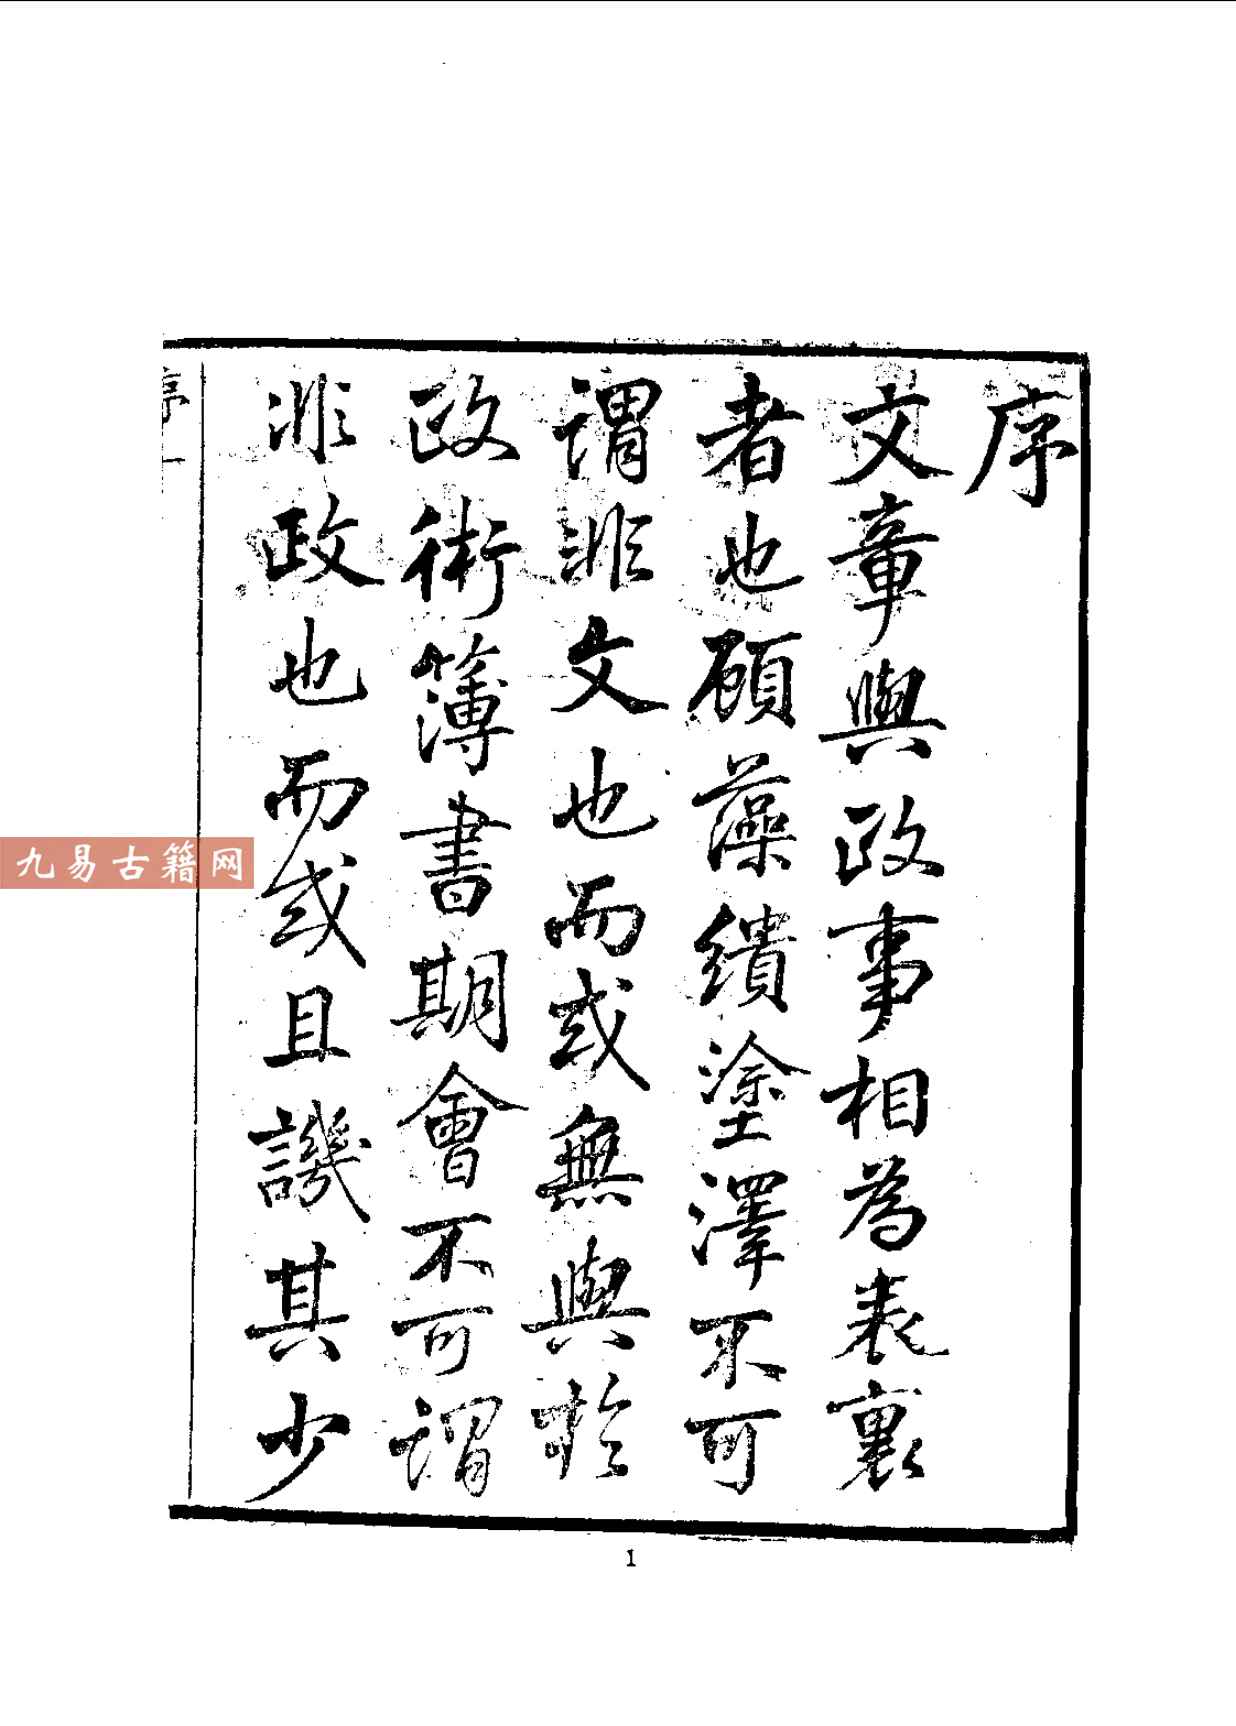 序
文章與政事相為表裏
者也顧藻繢塗澤不可
謂非文也而或無與於
政術簿書期會不可謂
非政也而或且譏其少
序 一
九易古籍网
1